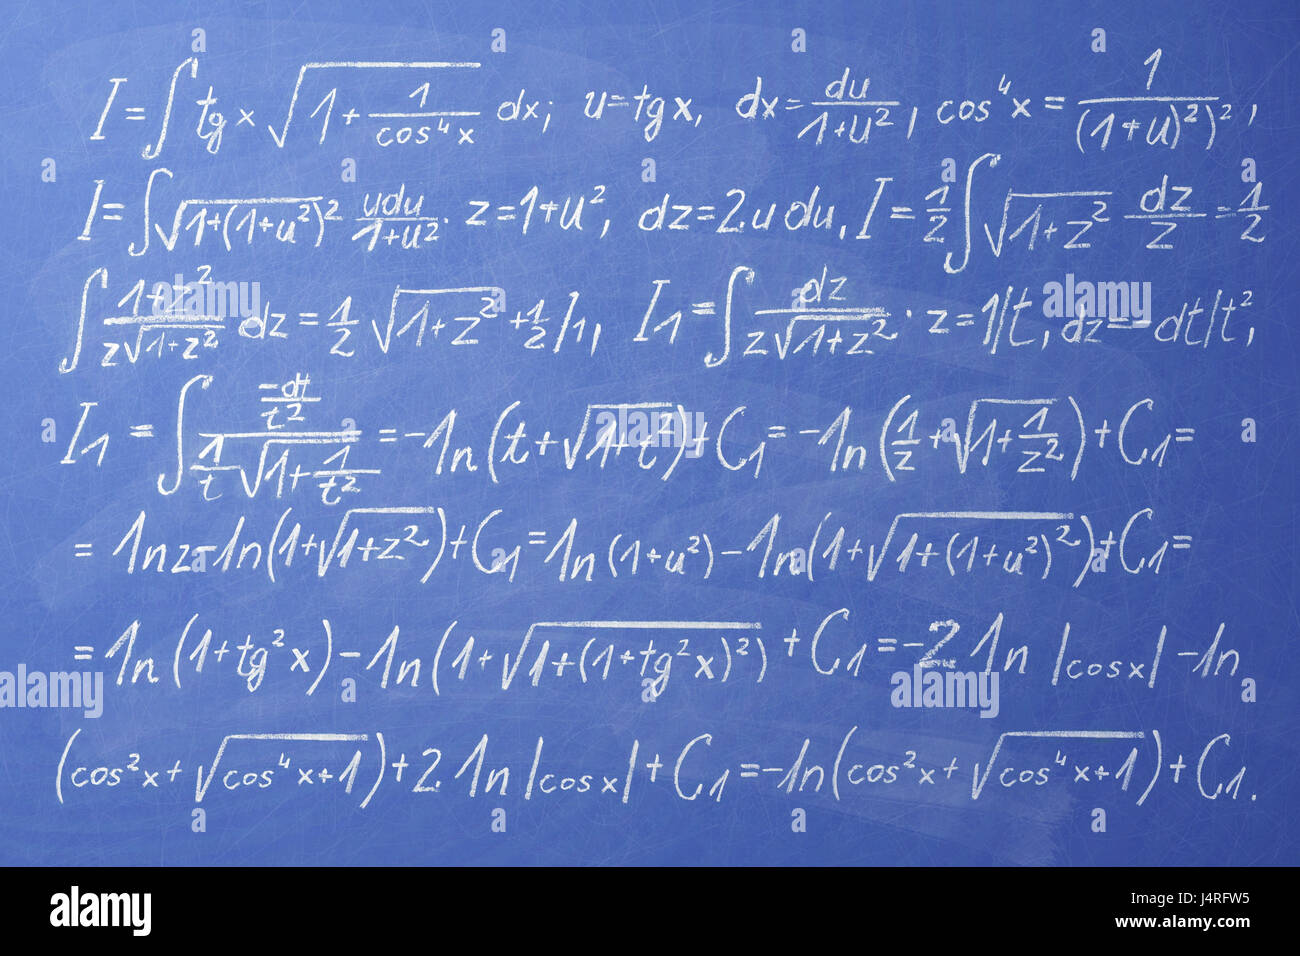 I=∫tg x √(1+1/cos⁴x) dx; u=tg x, dx=du/(1+u²), cos⁴x=1/(1+u)²)²,
I=∫√(1+(1+u²)²) udu/(1+u²). z=1+u², dz=2udu, I=1/2∫√(1+z²) dz/z=1/2
∫(1+z²)/(z√(1+z²)) dz=1/2 √(1+z²)+1/2 I₁, I₁=∫dz/(z√(1+z²)). z=1/t, dz=-dt/t²,
I₁=∫(-dt/t²)/(1/t √(1+1/t²))=-ln(t+√(1+t²))+C₁=-ln(1/z+√(1+1/z²))+C₁=
=lnz-ln(1+√(1+z²))+C₁=ln(1+u²)-ln(1+√(1+(1+u²)²))+C₁=
=ln(1+tg²x)-ln(1+√(1+(1+tg²x)²))+C₁=-2ln|cosx|-ln
(cos²x+√(cos⁴x+1))+2ln|cosx|+C₁=-ln(cos²x+√(cos⁴x+1))+C₁.
a alamy
alamy
Image ID: J4RFW5
www.alamy.com